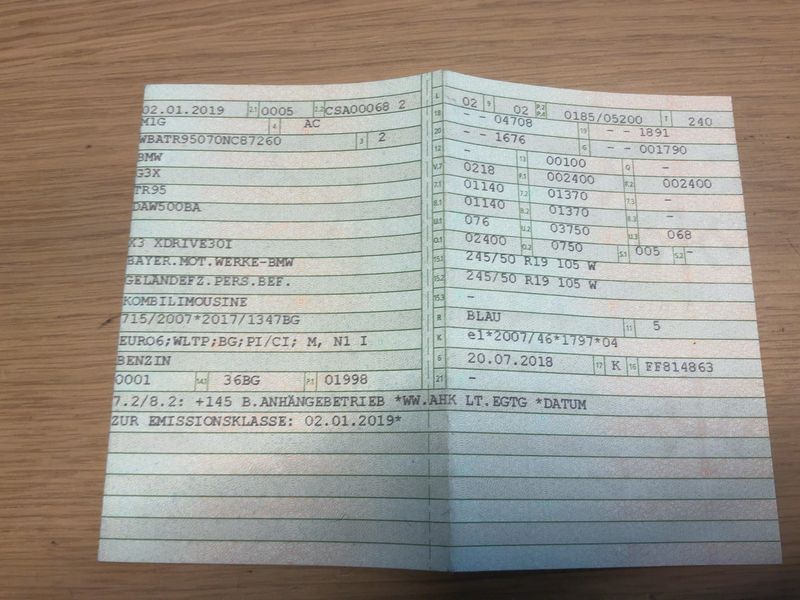 02.01.2019 2.1 0005 2.2 CSA00068 2
M1G 4 AC
WBATR95070NC87260 3 2
BMW
G3X
TR95
DAW500BA
X3 XDRIVE30I
BAYER.MOT.WERKE-BMW
GELÄNDEFZ.PERS.BEF.
KOMBILIMOUSINE
715/2007*2017/1347BG
EURO6;WLTP;BG;PI/CI; M, N1 I
BENZIN
0001 14.1 36BG P.1 01998
L 02 9 02 P.2 P.4 0185/05200 T 240
18 - - 04708 19 - - 1891
20 - - 1676 G - - 001790
12 - 13 00100 Q -
V.7 0218 F.1 002400 F.2 002400
7.1 01140 7.2 01370 7.3 -
8.1 01140 8.2 01370 8.3 -
U.1 076 U.2 03750 U.3 068
O.1 02400 O.2 0750 S.1 005 S.2 -
15.1 245/50 R19 105 W
15.2 245/50 R19 105 W
15.3 -
R BLAU 11 5
K e1*2007/46*1797*04
6 20.07.2018 17 K 16 FF814863
21 -
7.2/8.2: +145 B.ANHÄNGEBETRIEB *WW.AHK LT.EGTG *DATUM
ZUR EMISSIONSKLASSE: 02.01.2019*